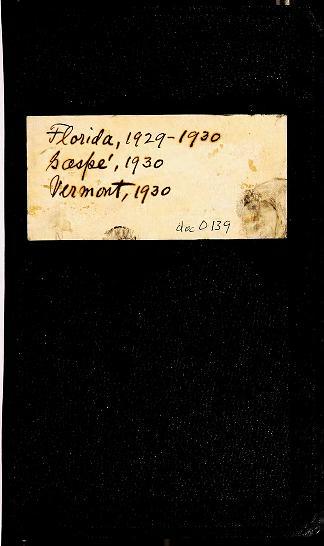 Florida, 1929-1930
Gaspé, 1930
Vermont, 1930
doc 0139